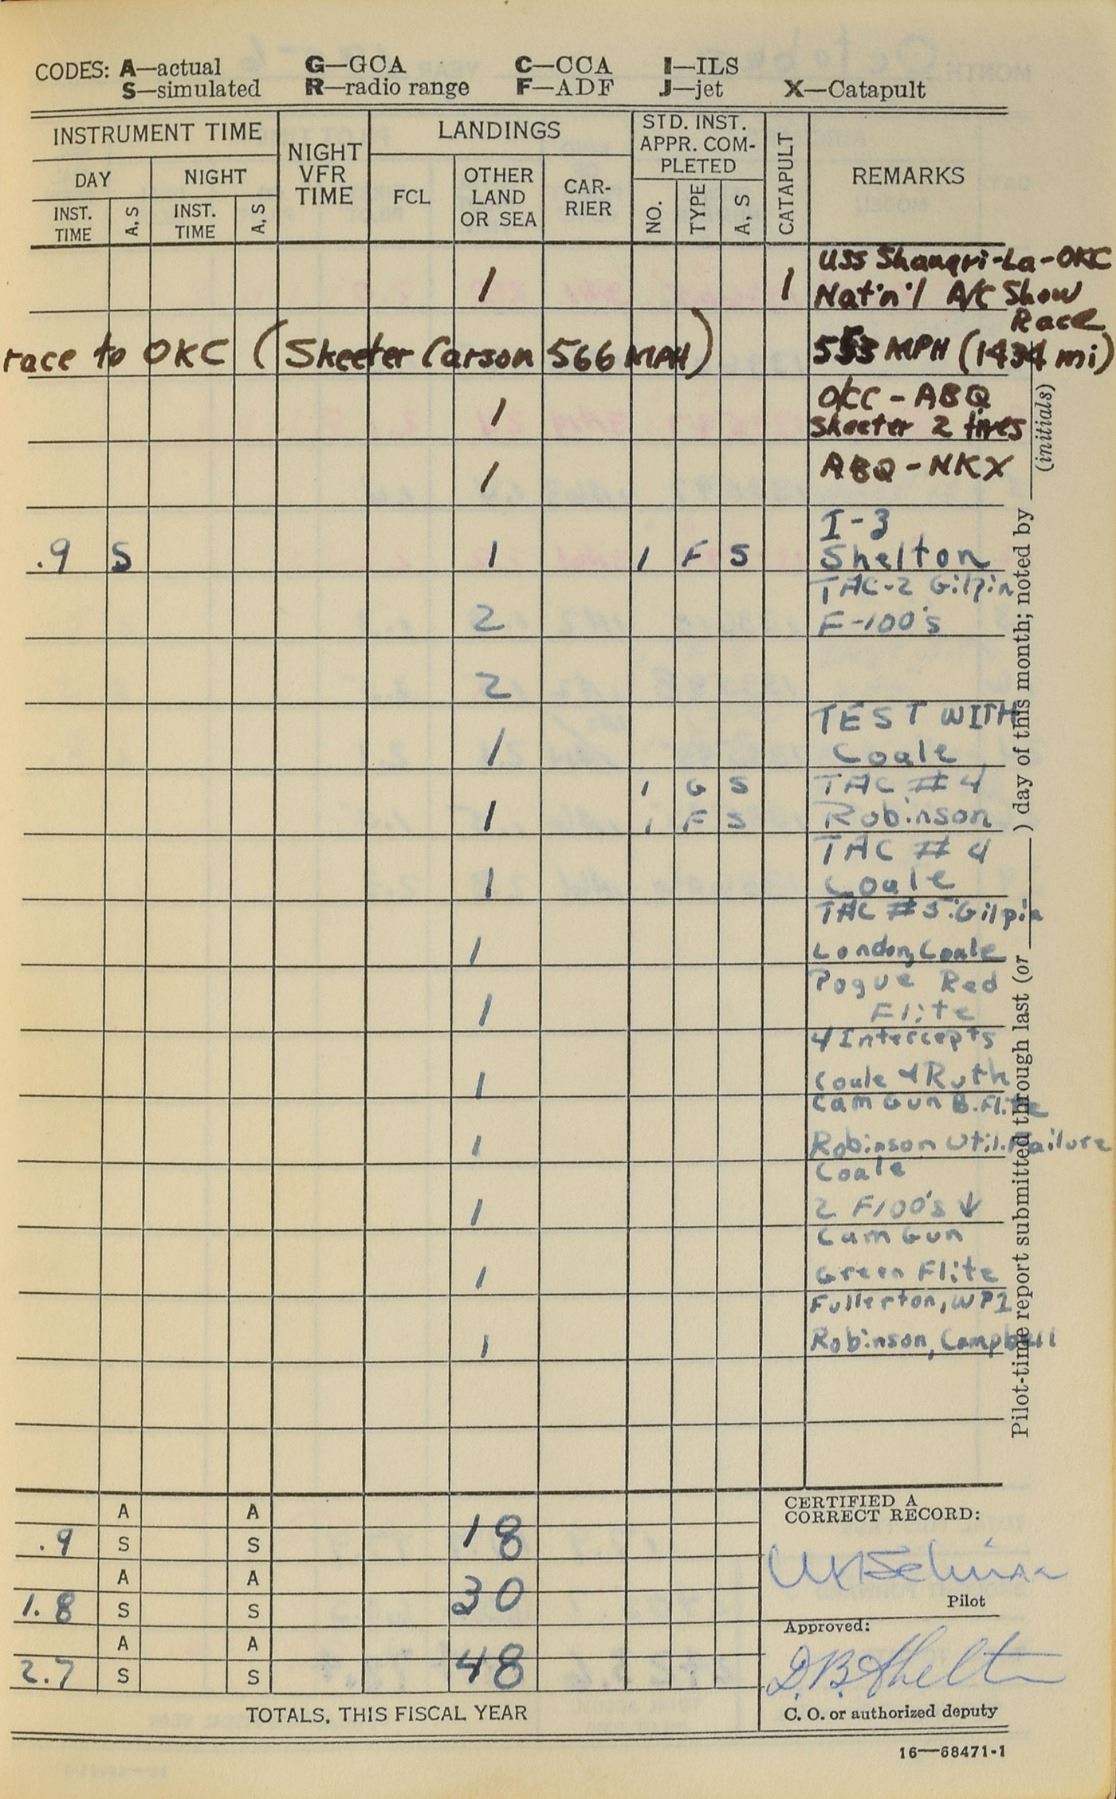 CODES: A—actual G—GCA C—CCA I—ILS
S—simulated R—radio range F—ADF J—jet X—Catapult
INSTRUMENT TIME
DAY
NIGHT
INST. TIME
A, S
INST. TIME
A, S
NIGHT VFR TIME
LANDINGS
FCL
OTHER LAND OR SEA
CAR-RIER
STD. INST. APPR. COM-PLETED
NO.
TYPE
A, S
CATAPULT
REMARKS
1 1 USS Shangri-La-OKC
Nat'n'l A/C Show
Race
race to OKC (Skeeter Carson 566 MPH) 553 MPH (1434 mi)
OKC - ABQ
1 Skeeter 2 tires
1 ABQ - NKX
I-3
.9 S 1 1 F S Shelton
TAC-2 Gilpin
2 F-100's
2
TEST WITH
1 Coale
1 G S TAC #4
1 1 F S Robinson
TAC #4
1 Coale
TAC #5 Gilpin
1 London, Coale
Pogue Red
1 Flite
4 Intercepts
1 Coale & Ruth
Cam Gun B. Flite
1 Robinson Util. Failure
Coale
1 2 F100's ↓
Cam Gun
1 Green Flite
Fullerton, WP2
1 Robinson, Campbell
(initials)
Pilot-time report submitted through last (or ) day of this month; noted by
A A
.9 S S 18
A A
1.8 S S 30
A A
2.7 S S 48
TOTALS, THIS FISCAL YEAR
CERTIFIED A
CORRECT RECORD:
Pilot
Approved:
D.B. Shelton
C. O. or authorized deputy
16—68471-1